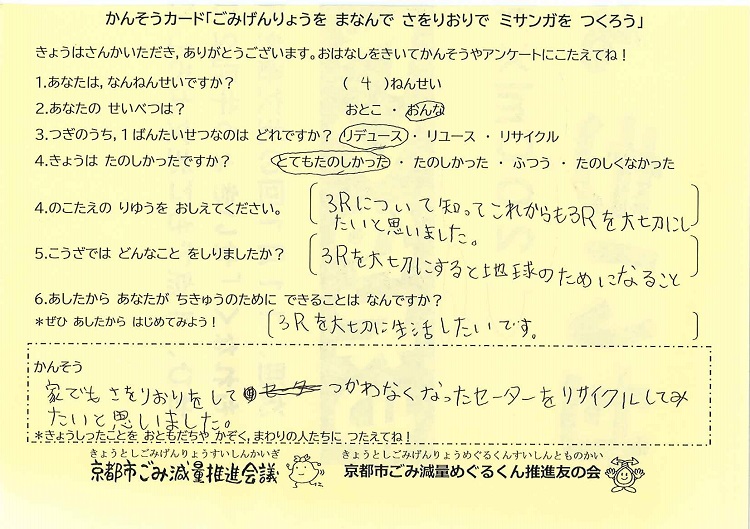 かんそうカード「ごみげんりょうを まなんで さをりおりで ミサンガを つくろう」
きょうはさんかいただき,ありがとうございます。おはなしをきいてかんそうやアンケートにこたえてね!
1.あなたは,なんねんせいですか? ( 4 )ねんせい
2.あなたの せいべつは? おとこ ・ おんな
3.つぎのうち,1ばんたいせつなのは どれですか? リデュース ・ リユース ・ リサイクル
4.きょうは たのしかったですか? とてもたのしかった ・ たのしかった ・ ふつう ・ たのしくなかった
4.のこたえの りゆうを おしえてください。 3Rについて知ってこれからも3Rを大切にし
たいと思いました。
5.こうざでは どんなこと をしりましたか? 3Rを大切にすると地球のためになること
6.あしたから あなたが ちきゅうのために できることは なんですか?
*ぜひ あしたから はじめてみよう! 3Rを大切に生活したいです。
かんそう
家でもさをりおりをして セーター つかわなくなったセーターをリサイクルしてみ
たいと思いました。
*きょうしったことを おともだちや かぞく,まわりの人たちに つたえてね!
きょうとしごみげんりょうすいしんかいぎ きょうとしごみげんりょうめぐるくんすいしんとものかい
京都市ごみ減量推進会議 京都市ごみ減量めぐるくん推進友の会